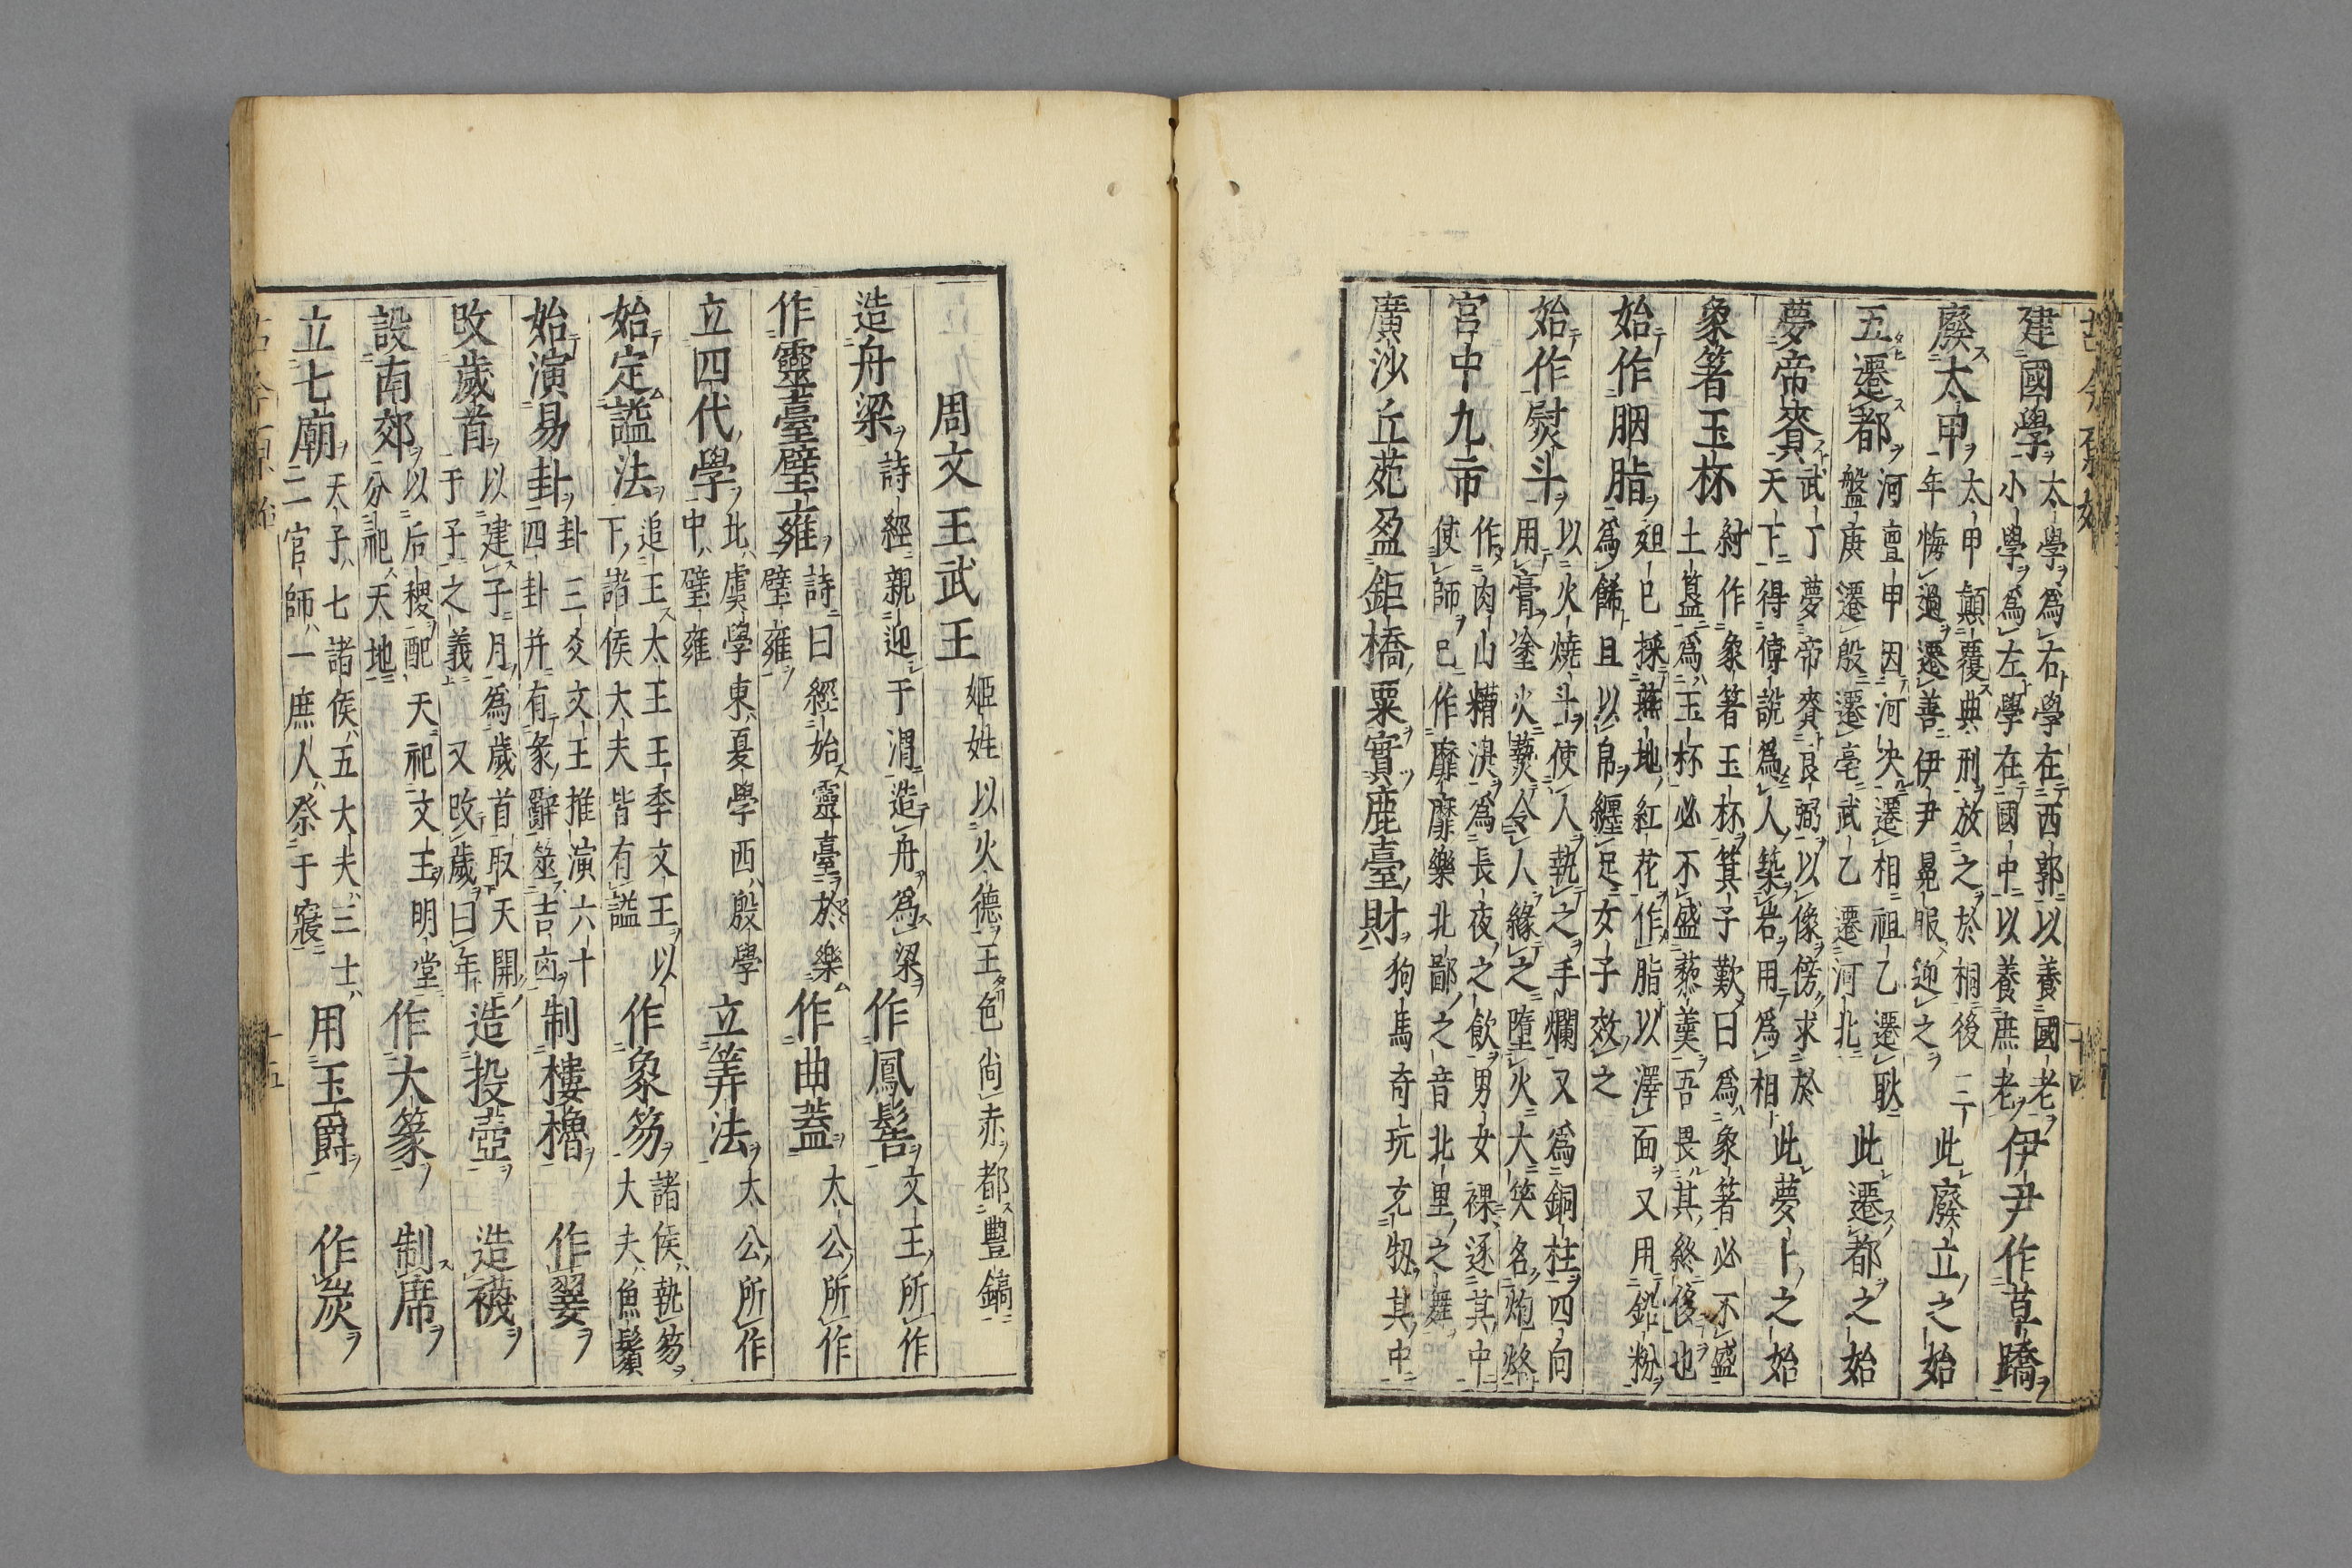 建國學太學爲右學在西郭以養國老伊尹作草蹻
小學爲左學在國中以養庶老
廢太甲太甲顛覆典刑放之於桐後三此廢立之始
年悔過遷善伊尹冕服迎之
五遷都河亶甲因河决遷相祖乙遷耿此遷都之始
盤庚遷殷遷亳武乙遷河北
夢帝賚武丁夢帝賚良弼以像傍求於此夢卜之始
天下得傅說爲人築岩用爲相
象箸玉杯紂作象箸玉杯箕子歎曰爲象箸必不盛
土簋爲玉杯必不盛藜羹吾畏其終侈也
始作胭脂妲己採燕地紅花作脂以澤面又用鉛粉
爲餙且以帛纏足女子效之
始作熨斗以火燒斗使人執之手爛又爲銅柱四向
用膏塗火爇令人緣之墮火大笑名炮烙
宮中九市作肉山糟決爲長夜之飲男女裸逐其中
使師己作靡靡樂北鄙之音北里之舞
廣沙丘苑盈鉅橋粟實鹿臺財狗馬奇玩充牣其中
十四
周文王武王姬姓以火德王色尙赤都豐鎬
造舟梁詩經親迎于渭造舟爲梁作鳳髻文王所作
作靈臺璧雍詩曰經始靈臺於樂作曲蓋太公所作
璧雍
立四代學北虞學東夏學西殷學立筭法太公所作
中璧雍
始定謚法追王太王王季文王以作象笏諸侯執笏
下諸侯大夫皆有謚大夫魚鬚
始演易卦卦三爻文王推演六十制樓櫓作翣
四卦并有彖辭筮吉凶
改歲首以建子月爲歲首取天開造投壺造襪
于子之義又改歲曰年
設南郊以后稷配天祀文王明堂作大篆制席
分祀天地
立七廟天子七諸侯五大夫三士用玉爵作炭
二官師一庶人祭于寢
十五